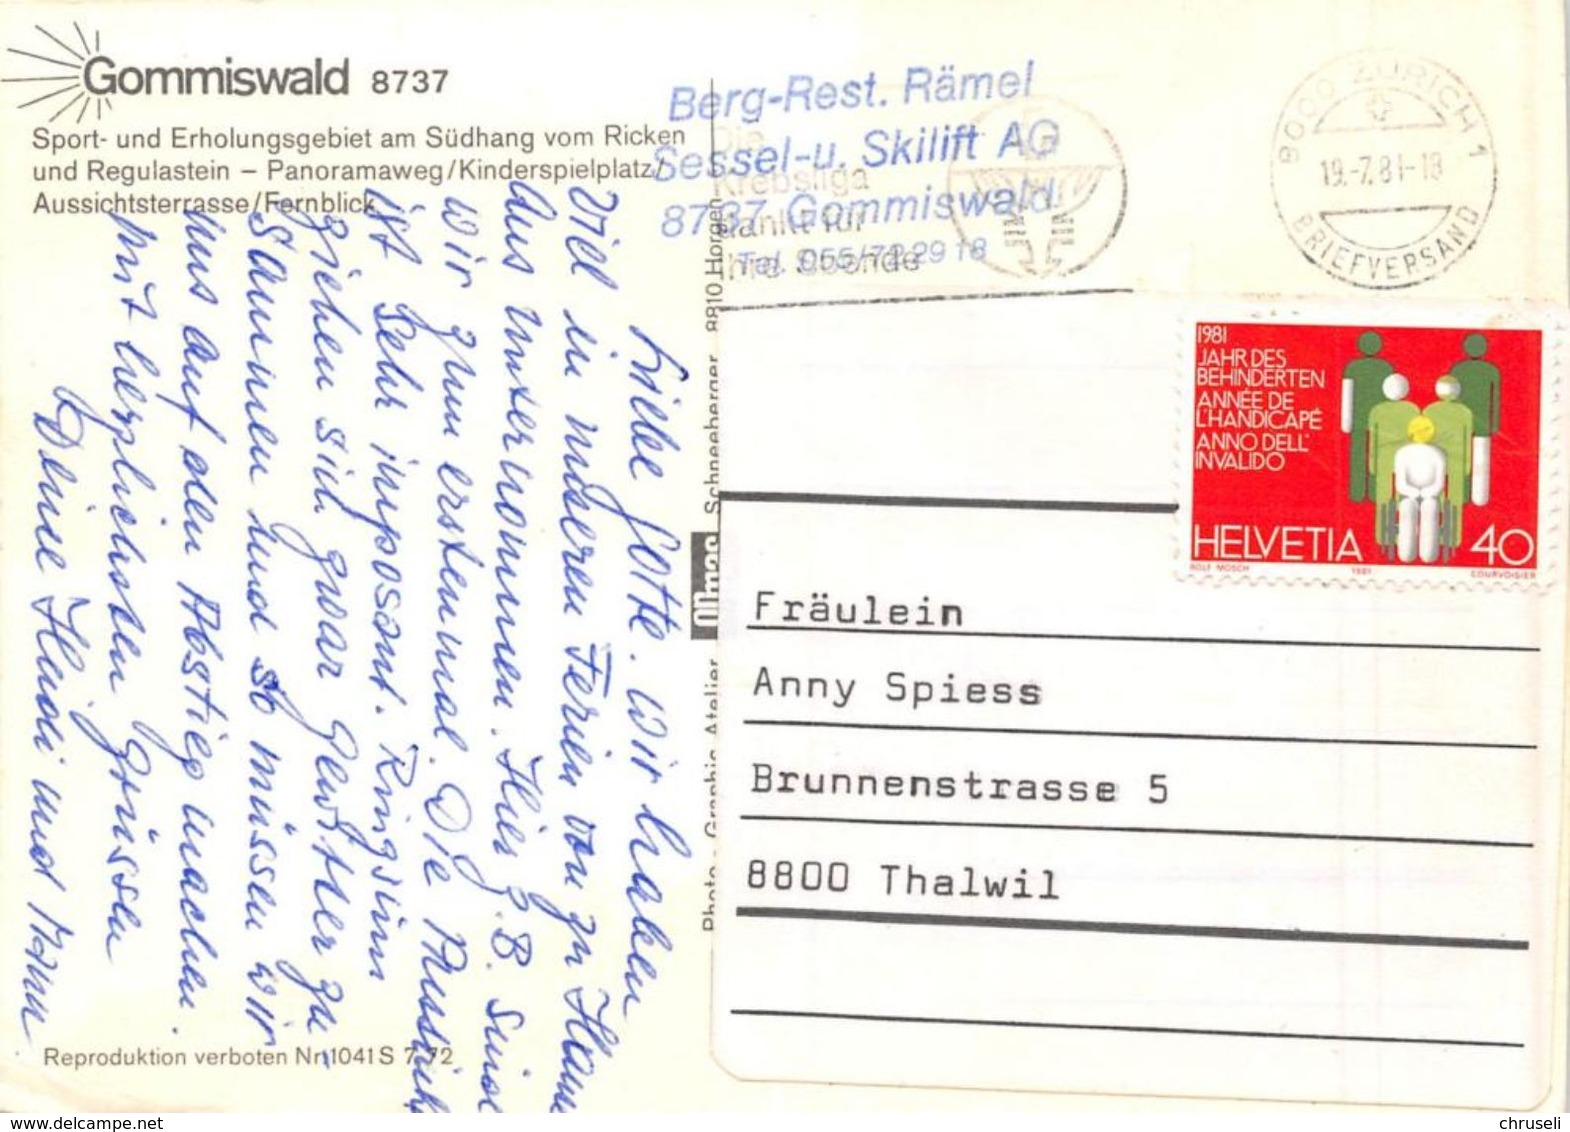 Gommiswald 8737
Sport- und Erholungsgebiet am Südhang vom Ricken
und Regulastein – Panoramaweg/Kinderspielplatz/
Aussichtsterrasse/Fernblick
Berg-Rest. Rämel
Sessel-u. Skilift AG
8737 Gommiswald
Tel. 055/72 29 18
Die
Krebsliga
dankt für
Ihre Spende
8000 ZÜRICH 1
19.-7.81-18
BRIEFVERSAND
1981
JAHR DES
BEHINDERTEN
ANNÉE DE
L'HANDICAPÉ
ANNO DELL'
INVALIDO
HELVETIA 40
ROLF MOSCH 1981 COURVOISIER
Liebe Gotte. Wir haben
viel in unseren Ferien von zu Haus
aus unternommen. Hier z.B. sind
wir zum ersten mal. Die Aussicht
ist sehr imposant. Ringsum
ziehen sich zwar Gewitter zu-
sammen und so müssen wir
uns auf den Abstieg machen.
Mit herzlichsten Grüssen
Deine Hudi und Mann
Photo-Graphic Atelier Schneeberger 8810 Horgen
Fräulein
Anny Spiess
Brunnenstrasse 5
8800 Thalwil
Reproduktion verboten Nr. 1041 S 7 72
www.delcampe.net
chruseli